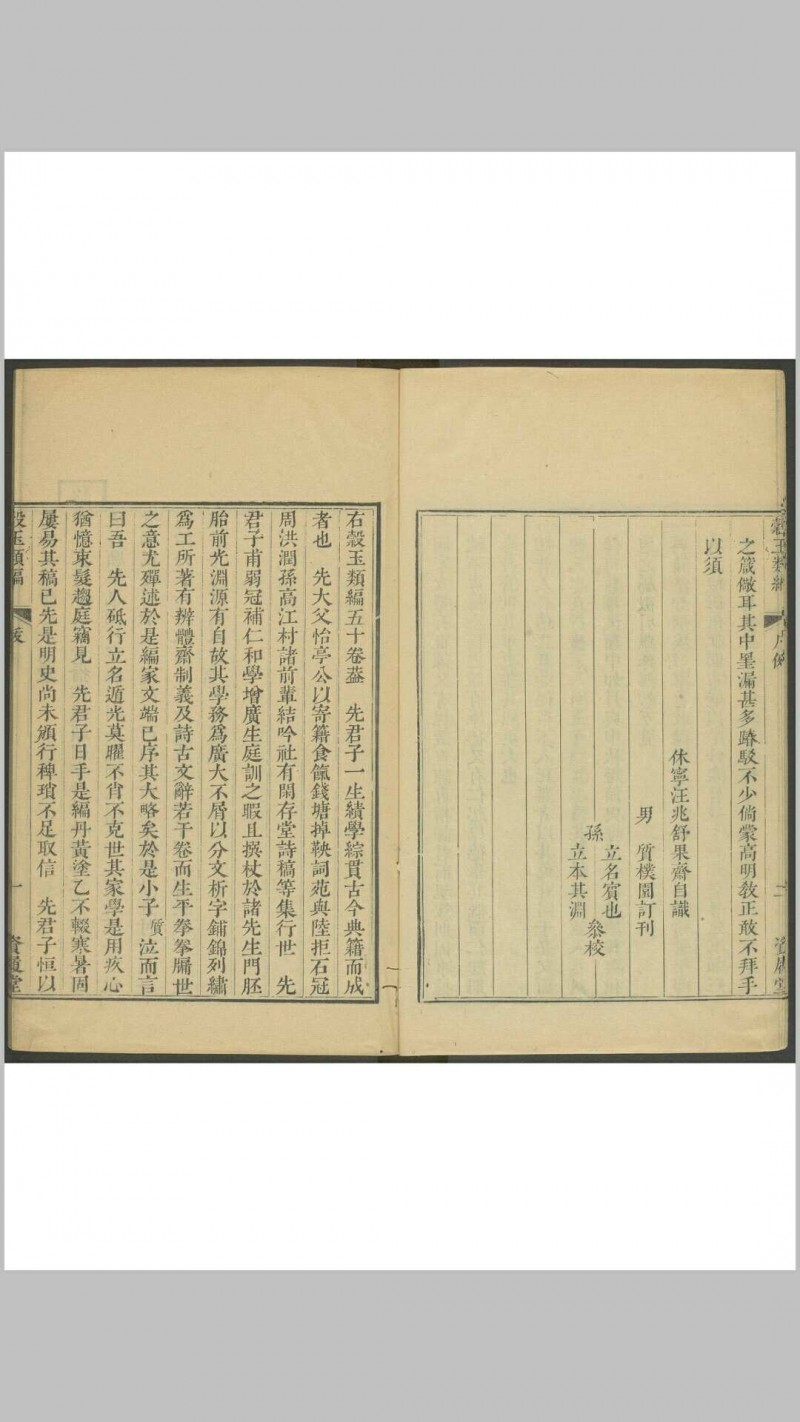 之箴儆耳其中罣漏甚多踳駁不少倘蒙高明教正敢不拜手
以須
休寧汪兆舒果齋自識
男 質樸園訂刊
孫 立名賓也
立本其淵 叅校
資履堂
右㲄玉類編五十卷葢 先君子一生績學綜貫古今典籍而成
者也 先大父怡亭公以寄籍食餼錢塘掉鞅詞苑與陸拒石冠
周洪潤孫高江村諸前輩結吟社有閑存堂詩稿等集行世 先
君子甫弱冠補仁和學增廣生庭訓之暇且撰杖於諸先生門胚
胎前光淵源有自故其學務爲廣大不屑以分文析字鋪錦列繡
爲工所著有辨體齋制義及詩古文辭若干卷而生平拳拳牖世
之意尤殫述於是編家文端已序其大略矣於是小子質泣而言
曰吾 先人砥行立名遁光莫曜不肖不克世其家學是用疚心
猶憶束髮趨庭竊見 先君子日手是編丹黃塗乙不輟寒暑固
屢易其稿已先是明史尚未頒行稗瑣不足取信 先君子恒以
㲄玉類編 跋 一